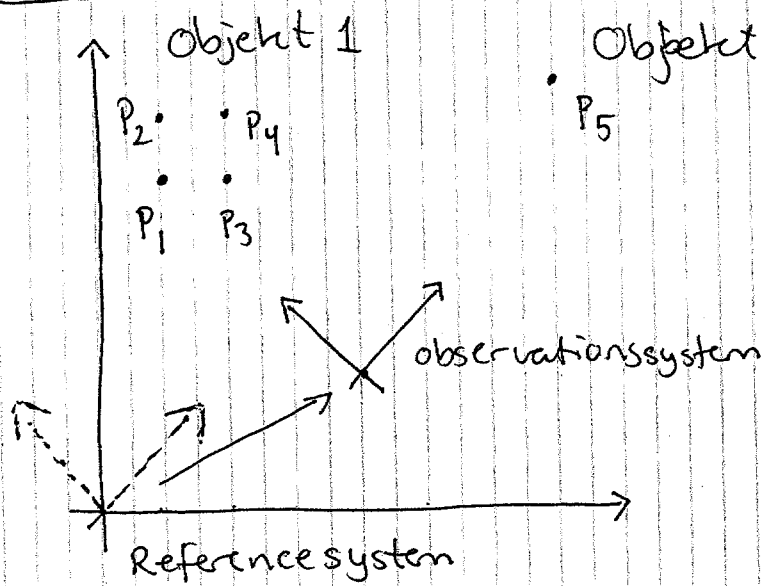 Objekt 1
Objekt
P2
P4
P5
P1
P3
observationssystem
Referencesystem